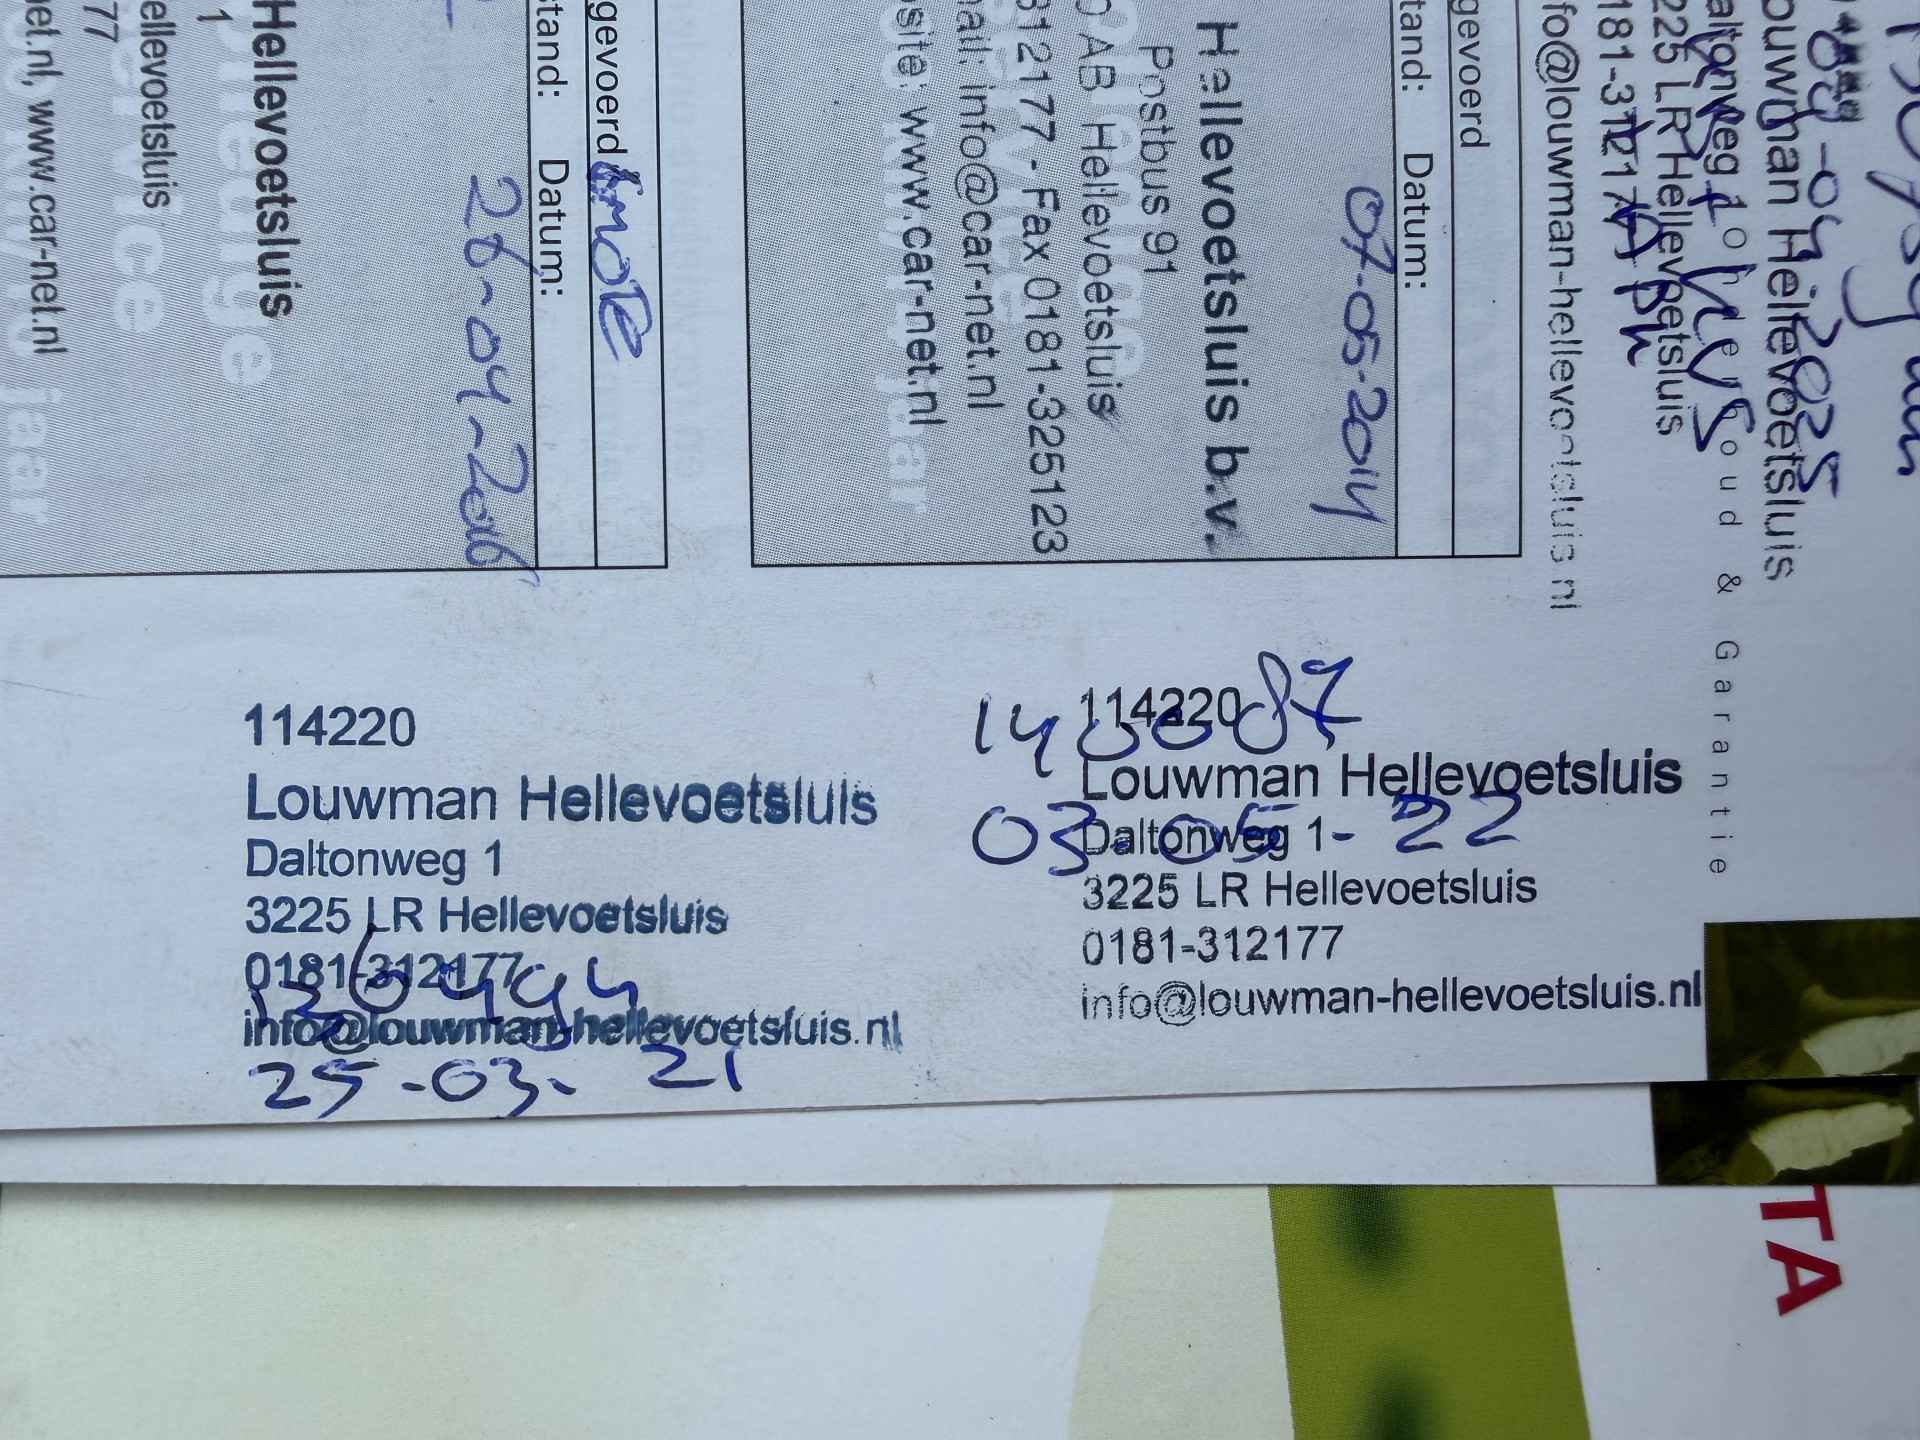 114220
Louwman Hellevoetsluis
Daltonweg 1
3225 LR Hellevoetsluis
0181-312177
info@louwman-hellevoetsluis.nl
25-03-21
114220
140087
Louwman Hellevoetsluis
Daltonweg 1
03-05-22
3225 LR Hellevoetsluis
0181-312177
info@louwman-hellevoetsluis.nl
ouwman Hellevoetsluis
altonweg 1
225 LR Hellevoetsluis
181-312177
fo@louwman-hellevoetsluis.nl
oud & Garantie
gevoerd
tand: Datum:
07-05-2014
Hellevoetsluis b.v.
Postbus 91
0 AB Hellevoetsluis
312177 - Fax 0181-325123
ail: info@car-net.nl
site: www.car-net.nl
jaar
gevoerd
stand: Datum:
26-04-2016
Hellevoetsluis
1
ellevoetsluis
77
net.nl, www.car-net.nl
jaar
TA